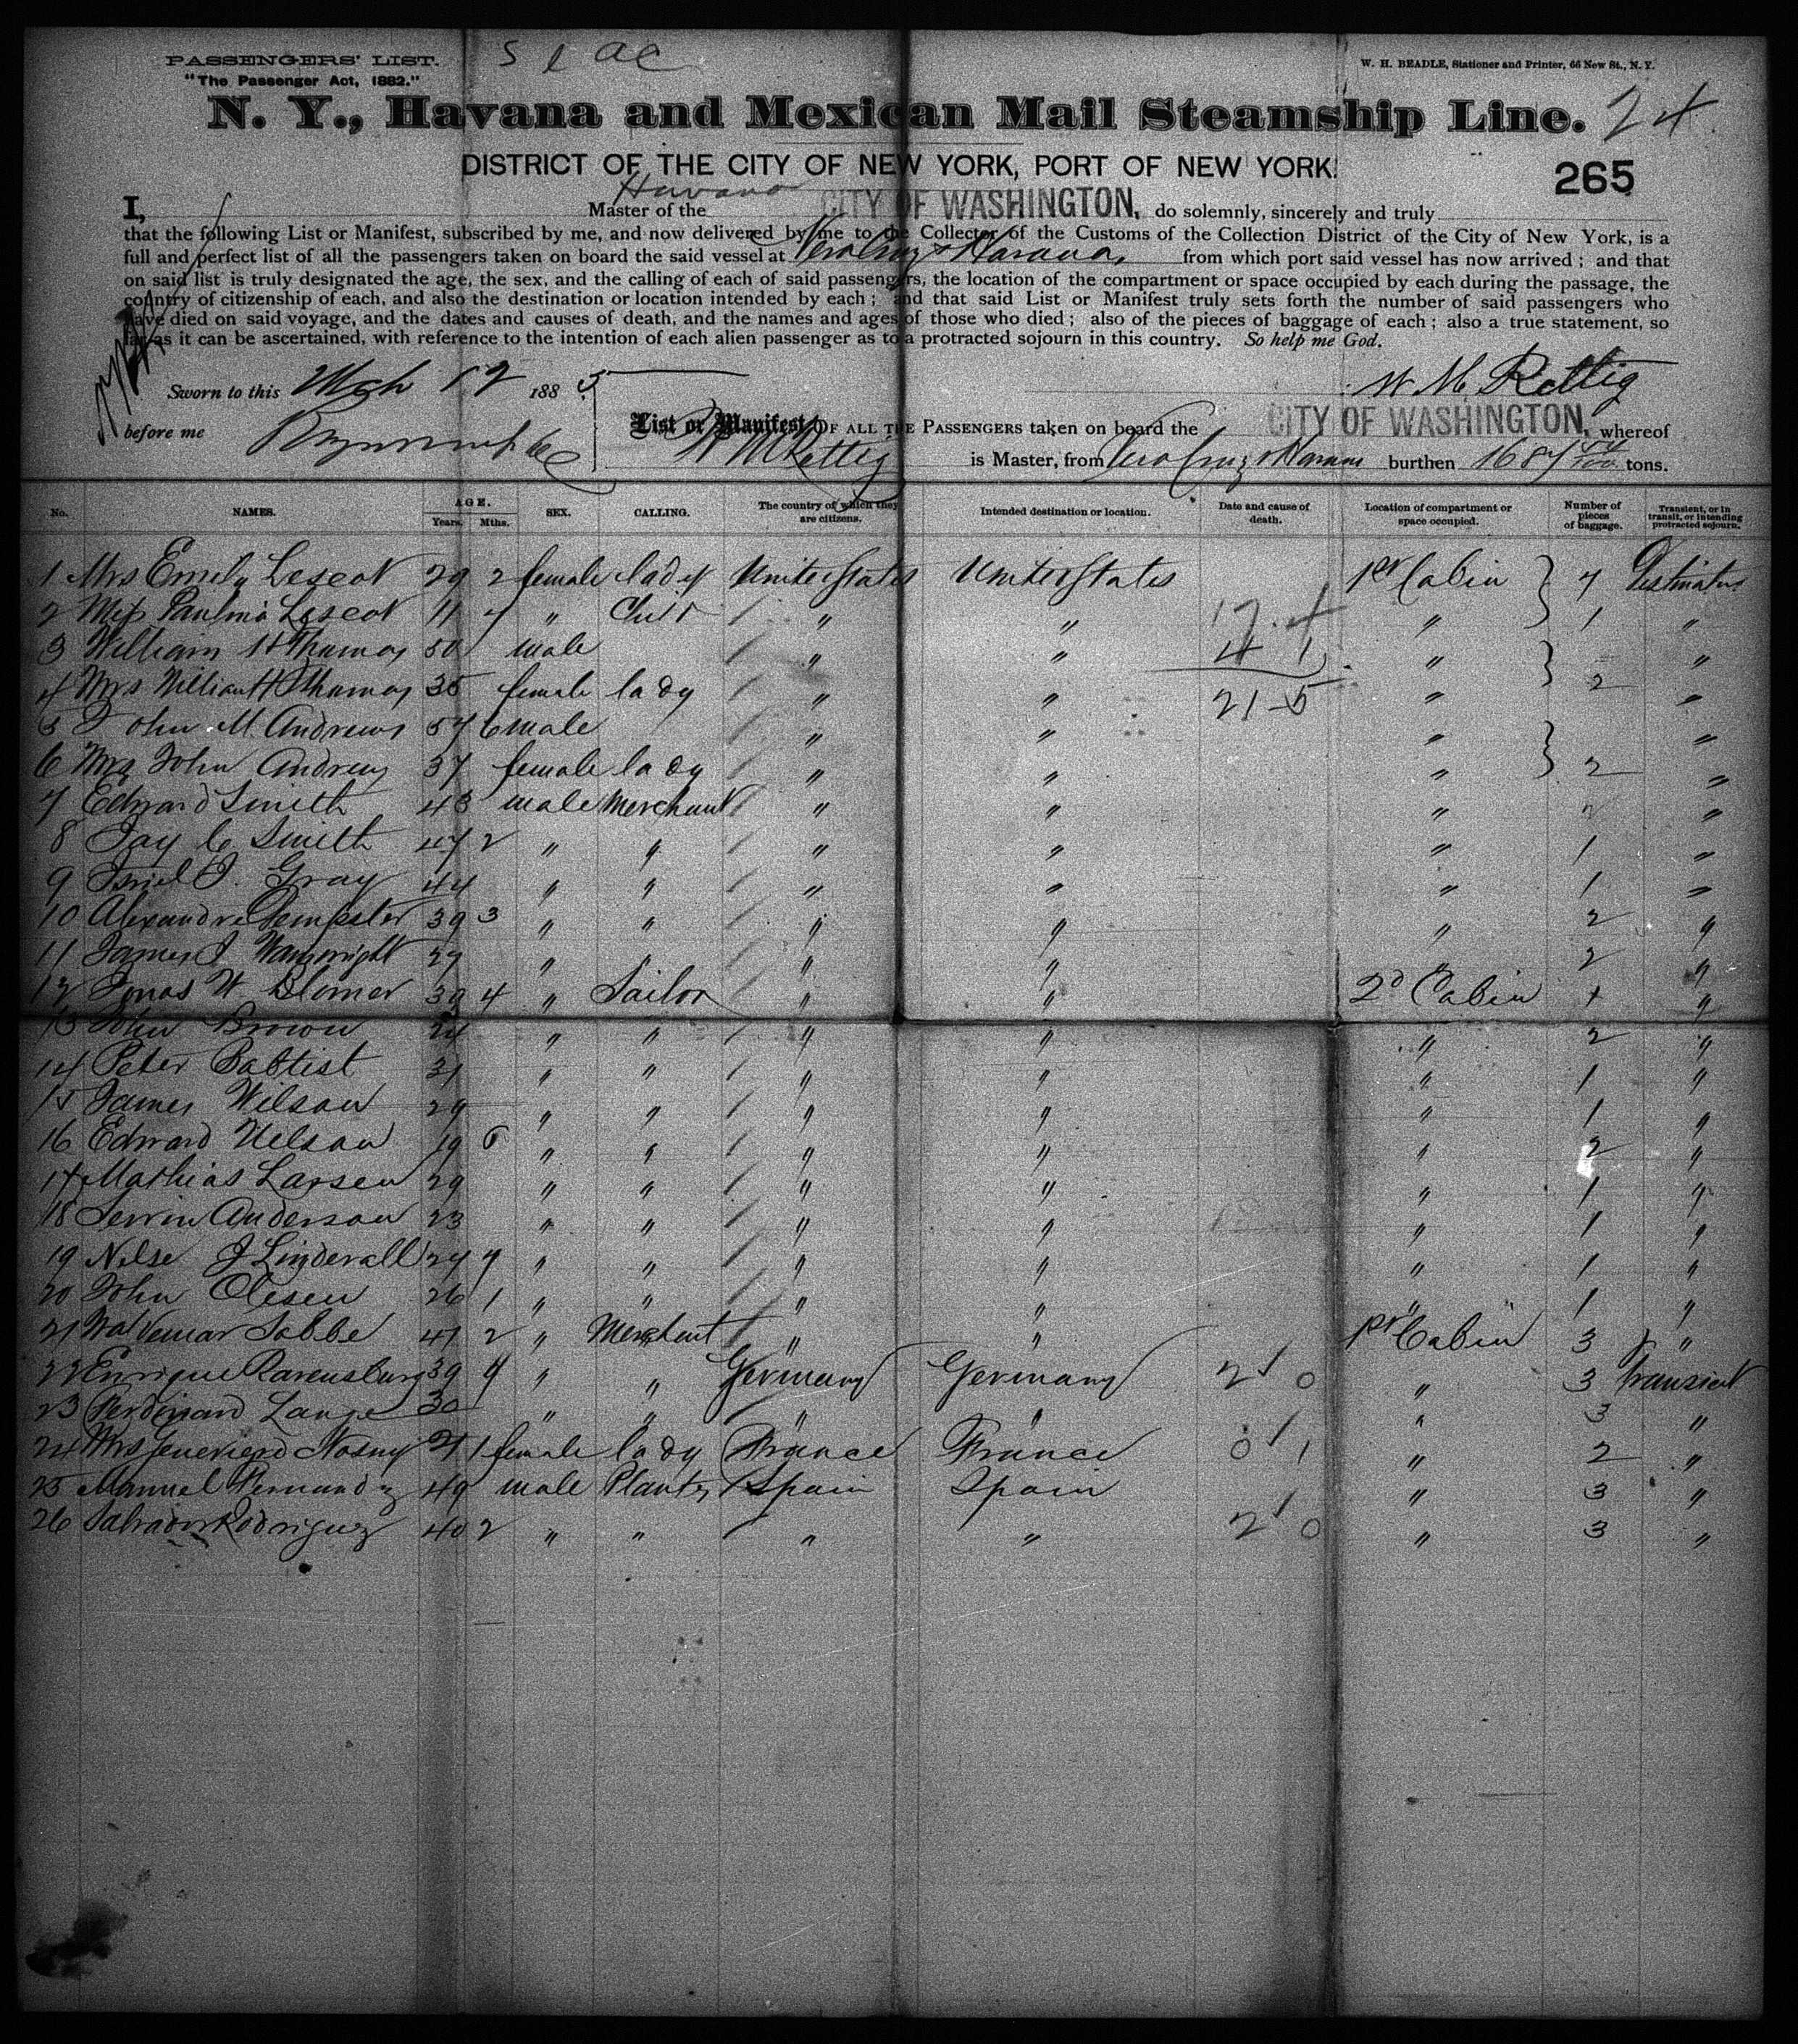 PASSENGERS' LIST.
"The Passenger Act, 1882."
W. H. BEADLE, Stationer and Printer, 66 New St., N. Y.
N. Y., Havana and Mexican Mail Steamship Line. 24
DISTRICT OF THE CITY OF NEW YORK, PORT OF NEW YORK:
265
Havana
I, Master of the CITY OF WASHINGTON, do solemnly, sincerely and truly
that the following List or Manifest, subscribed by me, and now delivered by me to the Collector of the Customs of the Collection District of the City of New York, is a
full and perfect list of all the passengers taken on board the said vessel at Vera Cruz & Havana, from which port said vessel has now arrived; and that
on said list is truly designated the age, the sex, and the calling of each of said passengers, the location of the compartment or space occupied by each during the passage, the
country of citizenship of each, and also the destination or location intended by each; and that said List or Manifest truly sets forth the number of said passengers who
have died on said voyage, and the dates and causes of death, and the names and ages of those who died; also of the pieces of baggage of each; also a true statement, so
far as it can be ascertained, with reference to the intention of each alien passenger as to a protracted sojourn in this country. So help me God.
W M Rettig
Sworn to this Mch 12 1883
before me
List or Manifest OF ALL THE PASSENGERS taken on board the CITY OF WASHINGTON, whereof
W M Rettig is Master, from Vera Cruz & Havana burthen 1684 tons.
No. NAMES. AGE. Years. Mths. SEX. CALLING. The country of which they are citizens. Intended destination or location. Date and cause of death. Location of compartment or space occupied. Number of pieces of baggage. Transient, or in transit, or intending protracted sojourn.
1 Mrs Emely Lescot 29 2 female lady United States United States 1st Cabin 4
2 Miss Paulina Lescot 11 4 " Child " " " 1 "
3 William H Thomas 50 male " " " "
4 Mrs William H Thomas 35 female lady " " " 2 "
5 John M. Andrews 54 6 male " " " "
6 Mrs John Andrews 37 female lady " " " 2 "
7 Edward Smith 43 male Merchant " " " 2 "
8 Jay C Smith 47 2 " " " " " 1 "
9 J. Gray 44 " " " " " 1 "
10 Alexandre Dempster 39 3 " " " " " 2 "
11 James J Wainwright 27 " " " " " 2 "
12 Jonas W Blomer 39 4 " Sailor " " 2d Cabin 1 "
13 John Brown 24 " " " " " 2 "
14 Peter Babtist 31 " " " " " 1 "
15 James Wilson 29 " " " " " 1 "
16 Edward Nelson 19 6 " " " " " 2 "
17 Mathias Larsen 29 " " " " " 1 "
18 Anderson 23 " " " " " 1 "
19 Nelse J Linderall 24 9 " " " " " 1 "
20 John Olesen 26 1 " " " " " 1 "
21 Waldemar Sobbe 41 2 " Merchant " " 1st Cabin 3 "
22 Enrique Ravensburg 39 4 " " Germany Germany 2 0 " 3 Transient
23 Ferdinand Lange 30 " " " " " 3 "
24 Mrs Nosny 21 1 female lady France France 0 1 " 2 "
25 Manuel Fernandez 49 male Planter Spain Spain " 3 "
26 Salvador Rodriguez 40 2 " " " " 2 0 " 3 "
17 4
4 1
21-5